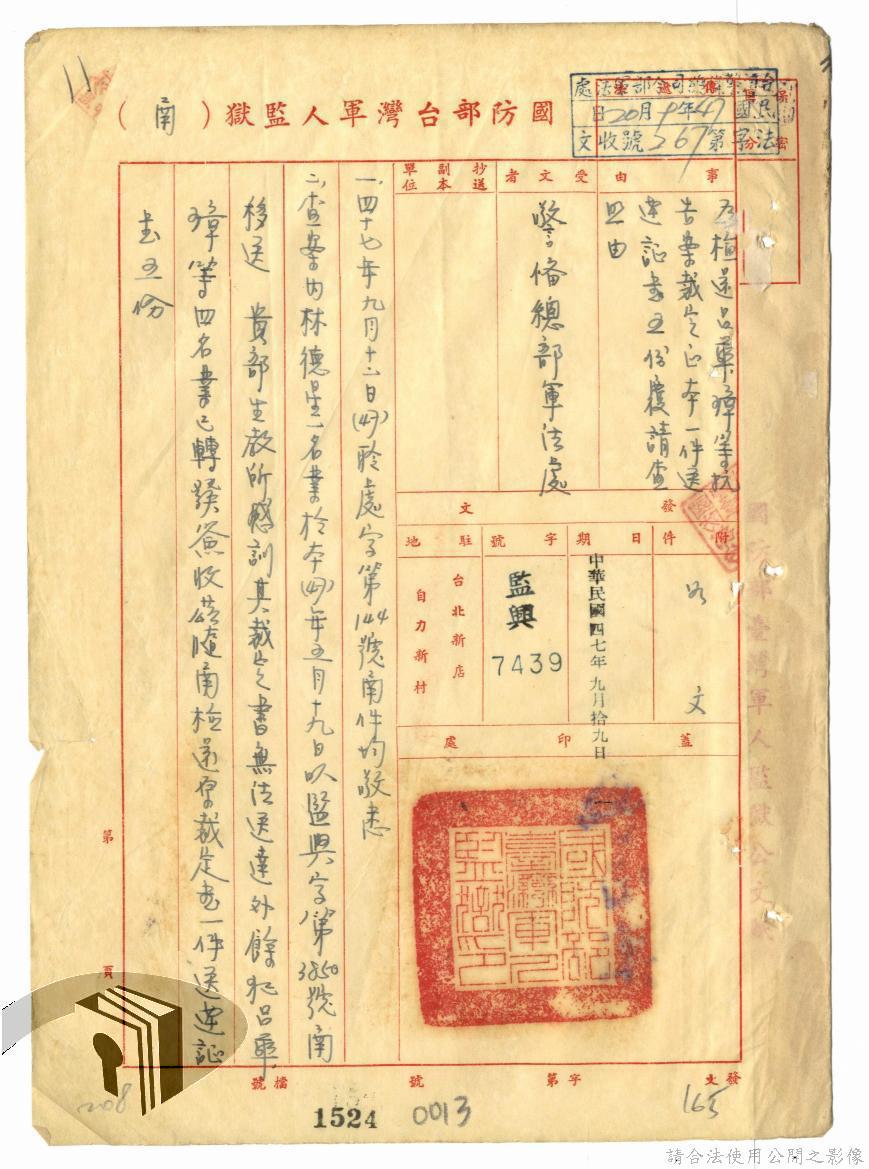 國防部台灣軍人監獄（函）
台灣警備總司令部軍法處
民國47年9月20日
法字第267號收文
事由
為檢送呂華璋等抗
告案裁定正本一件送
達証書五份覆請查
照由
受文者
警備總部軍法處
抄送副本單位
發文
附件
如文
日期
中華民國四七年九月拾九日
字號
監興
7439
駐地
台北新店
自力新村
蓋印處
國防部臺灣軍人監獄印
一、四十七年九月十二日(47)聆處字第144號函件均敬悉
二、查案內林德星一名業於本(47)年五月十九日以監興字第3850號函
移送　貴部生教所感訓其裁定書無法送達外餘犯呂華
璋等四名業已轉發簽收茲隨函檢還原裁定書一件送達証
書五份
第
頁
發文
字第
號
檔號
11
165
0013
1524
208
請合法使用公開之影像